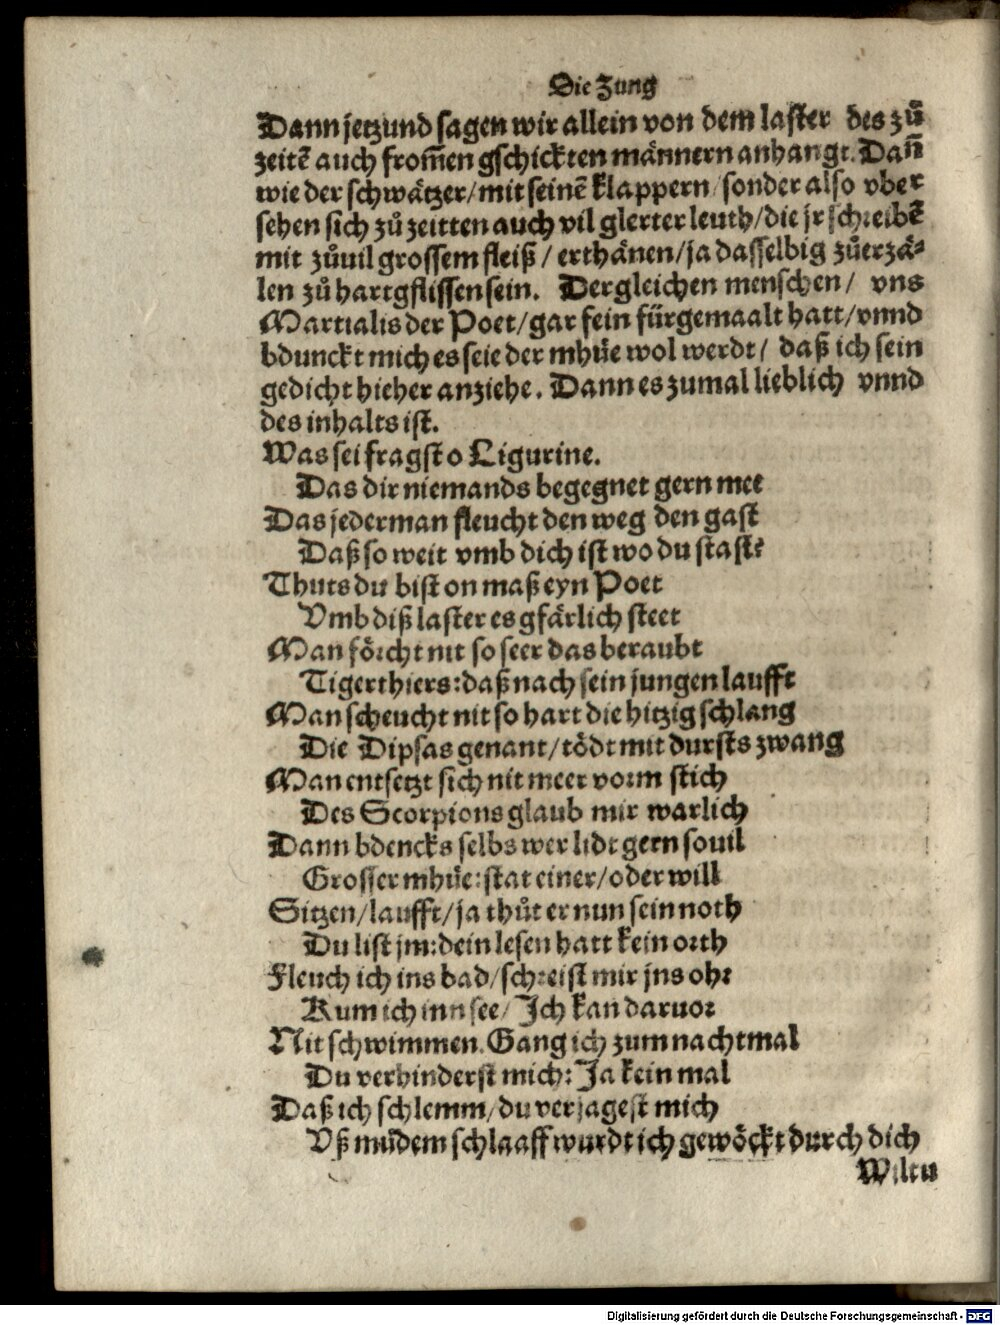 Die Zung
Dann jetzund sagen wir allein von dem laster des zů
zeitē auch from̄en gschickten männern anhangt. Dan̄
wie der schwätzer/mit seinē klappern/sonder also vber
sehen sich zů zeitten auch vil glerter leuth/die jr schreibē
mit zůuil grossem fleiß/erthänen/ja dasselbig zůerzä⸗
len zů hartgflissen sein. Dergleichen menschen/ vns
Martialis der Poet/gar fein fürgemaalt hatt/vnnd
bdunckt mich es seie der mhüe wol werdt/ daß ich sein
gedicht hieher anziehe. Dann es zumal lieblich vnnd
des inhalts ist.
Was sei fragst o Ligurine.
Das dir niemands begegnet gern mee
Das jederman fleucht den weg den gast
Daß so weit vmb dich ist wo du stast?
Thuts du bist on maß eyn Poet
Vmb diß laster es gfärlich steet
Man förcht nit so seer das beraubt
Tigerthiers:daß nach sein jungen laufft
Man scheucht nit so hart die hitzig schlang
Die Dipsas genant/tödt mit dursts zwang
Man entsetzt sich nit meer vorm stich
Des Scorpions glaub mir warlich
Dann bdencks selbs wer lidt gern souil
Grosser mhüe:stat einer/oder will
Sitzen/laufft/ja thůt er nun sein noth
Du list jm:dein lesen hatt kein orth
Fleuch ich ins bad/schreist mir jns ohr
Kum ich inn see/ Ich kan daruor
Nit schwimmen. Gang ich zum nachtmal
Du verhinderst mich: Ja kein mal
Daß ich schlemm/du verjagest mich
Vß müdem schlaaff wurdt ich gewöckt durch dich
Wiltu
Digitalisierung gefördert durch die Deutsche Forschungsgemeinschaft - DFG